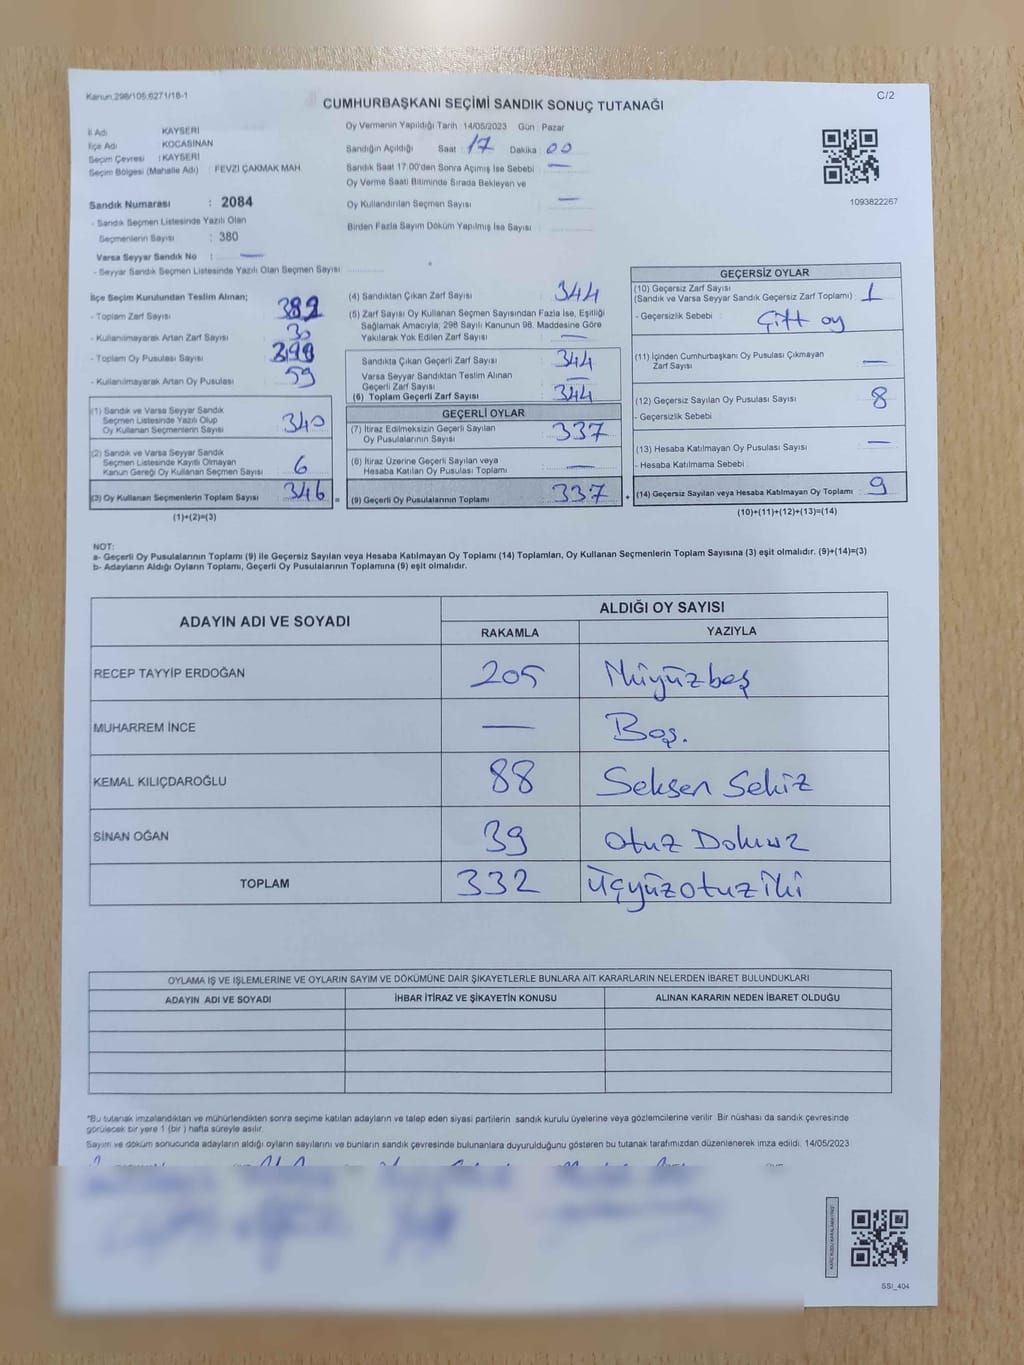 Kanun:298/105,6271/18-1
C/2
CUMHURBAŞKANI SEÇİMİ SANDIK SONUÇ TUTANAĞI
İl Adı KAYSERİ
İlçe Adı KOCASİNAN
Seçim Çevresi : KAYSERİ
Seçim Bölgesi (Mahalle Adı) FEVZİ ÇAKMAK MAH
Sandık Numarası : 2084
- Sandık Seçmen Listesinde Yazılı Olan
Seçmenlerin Sayısı : 380
Varsa Seyyar Sandık No : —
- Seyyar Sandık Seçmen Listesinde Yazılı Olan Seçmen Sayısı
Oy Vermenin Yapıldığı Tarih 14/05/2023 Gün : Pazar
Sandığın Açıldığı Saat : 17 Dakika : 00
Sandık Saat 17.00'den Sonra Açılmış İse Sebebi : —
Oy Verme Saati Bitiminde Sırada Bekleyen ve
Oy Kullandırılan Seçmen Sayısı : —
Birden Fazla Sayım Döküm Yapılmış İse Sayısı :
1093822267
İlçe Seçim Kurulundan Teslim Alınan;
- Toplam Zarf Sayısı : 382
- Kullanılmayarak Artan Zarf Sayısı :
- Toplam Oy Pusulası Sayısı :
- Kullanılmayarak Artan Oy Pusulası : 59
(1) Sandık ve Varsa Seyyar Sandık
Seçmen Listesinde Yazılı Olup
Oy Kullanan Seçmenlerin Sayısı : 340
(2) Sandık ve Varsa Seyyar Sandık
Seçmen Listesinde Kayıtlı Olmayan
Kanun Gereği Oy Kullanan Seçmen Sayısı : 6
(3) Oy Kullanan Seçmenlerin Toplam Sayısı : 346
(1)+(2)=(3)
(4) Sandıktan Çıkan Zarf Sayısı : 344
(5) Zarf Sayısı Oy Kullanan Seçmen Sayısından Fazla İse, Eşitliği
Sağlamak Amacıyla; 298 Sayılı Kanunun 98. Maddesine Göre
Yakılarak Yok Edilen Zarf Sayısı : —
Sandıkta Çıkan Geçerli Zarf Sayısı : 344
Varsa Seyyar Sandıktan Teslim Alınan
Geçerli Zarf Sayısı : —
(6) Toplam Geçerli Zarf Sayısı : 344
GEÇERLİ OYLAR
(7) İtiraz Edilmeksizin Geçerli Sayılan
Oy Pusulalarının Sayısı : 337
(8) İtiraz Üzerine Geçerli Sayılan veya
Hesaba Katılan Oy Pusulası Toplamı : —
= (9) Geçerli Oy Pusulalarının Toplamı : 337
GEÇERSİZ OYLAR
(10) Geçersiz Zarf Sayısı
(Sandık ve Varsa Seyyar Sandık Geçersiz Zarf Toplamı) : 1
- Geçersizlik Sebebi : Çift oy
(11) İçinden Cumhurbaşkanı Oy Pusulası Çıkmayan
Zarf Sayısı : —
(12) Geçersiz Sayılan Oy Pusulası Sayısı : 8
- Geçersizlik Sebebi :
(13) Hesaba Katılmayan Oy Pusulası Sayısı : —
- Hesaba Katılmama Sebebi :
+ (14) Geçersiz Sayılan veya Hesaba Katılmayan Oy Toplamı : 9
(10)+(11)+(12)+(13)=(14)
NOT:
a- Geçerli Oy Pusulalarının Toplamı (9) ile Geçersiz Sayılan veya Hesaba Katılmayan Oy Toplamı (14) Toplamları, Oy Kullanan Seçmenlerin Toplam Sayısına (3) eşit olmalıdır. (9)+(14)=(3)
b- Adayların Aldığı Oyların Toplamı, Geçerli Oy Pusulalarının Toplamına (9) eşit olmalıdır.
ADAYIN ADI VE SOYADI ALDIĞI OY SAYISI
RAKAMLA YAZIYLA
RECEP TAYYİP ERDOĞAN 205 İkiyüzbeş
MUHARREM İNCE — Boş.
KEMAL KILIÇDAROĞLU 88 Seksen Sekiz
SİNAN OĞAN 39 Otuz Dokuz
TOPLAM 332 Üçyüzotuziki
OYLAMA İŞ VE İŞLEMLERİNE VE OYLARIN SAYIM VE DÖKÜMÜNE DAİR ŞİKAYETLERLE BUNLARA AİT KARARLARIN NELERDEN İBARET BULUNDUKLARI
ADAYIN ADI VE SOYADI İHBAR İTİRAZ VE ŞİKAYETİN KONUSU ALINAN KARARIN NEDEN İBARET OLDUĞU
"Bu tutanak imzalandıktan ve mühürlendikten sonra seçime katılan adayların ve talep eden siyasi partilerin sandık kurulu üyelerine veya gözlemcilerine verilir. Bir nüshası da sandık çevresinde
görülecek bir yere 1 (bir) hafta süreyle asılır.
Sayım ve döküm sonucunda adayların aldığı oyların sayılarını ve bunların sandık çevresinde bulunanlara duyurulduğunu gösteren bu tutanak tarafımızdan düzenlenerek imza edildi. 14/05/2023
KARE KODU KARALAMAYINIZ
SSI_404